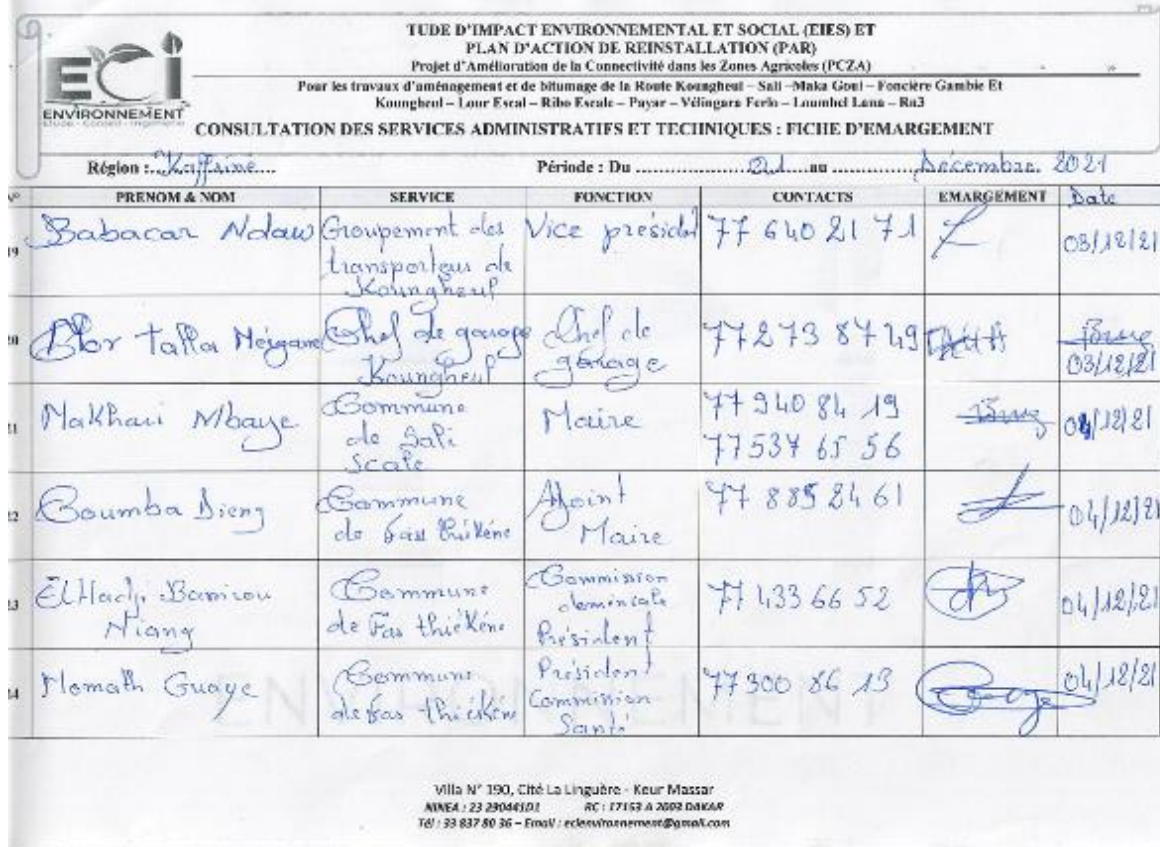 ECI
ENVIRONNEMENT
Etude - Conseil - Ingénierie
TUDE D'IMPACT ENVIRONNEMENTAL ET SOCIAL (EIES) ET
PLAN D'ACTION DE REINSTALLATION (PAR)
Projet d'Amélioration de la Connectivité dans les Zones Agricoles (PCZA)
Pour les travaux d'aménagement et de bitumage de la Route Koungheul – Sali –Maka Goui – Foncière Gambie Et
Koungheul – Lour Escal – Ribo Escale – Payar – Vélingara Ferlo – Loumbel Lana – Rn3
CONSULTATION DES SERVICES ADMINISTRATIFS ET TECHNIQUES : FICHE D'EMARGEMENT
Région :..Kaffrine.... Période : Du ........01......au ..............Décembre. 2021
N° PRENOM & NOM SERVICE FONCTION CONTACTS EMARGEMENT Date
19 Babacar Ndaw Groupement des transporteur de Koungheul Vice présidet 77 640 21 71 03/12/21
20 Mor Talla Chef de garage Koungheul Chef de garage 77 273 87 49 03/12/21
21 Makhari Mbaye Commune de Sali Scale Maire 77 940 84 19 77 537 65 56 04/12/21
22 Coumba Dieng Commune de Fass thiékéne Ajoint Maire 77 885 24 61 04/12/21
23 El Hadji Niang Commune de Fas thiékéne Commission dominiale Président 77 433 66 52 04/12/21
24 Momath Guaye Commune de Fas thiékéne Président Commission Santé 77 300 86 13 04/12/21
ENVIRONNEMENT
Villa N° 190, Cité La Linguère - Keur Massar
NINEA : 23 290441D1 RC : 17153 A 2003 DAKAR
Tél : 33 837 80 36 – Email : ecienvironnement@gmail.com